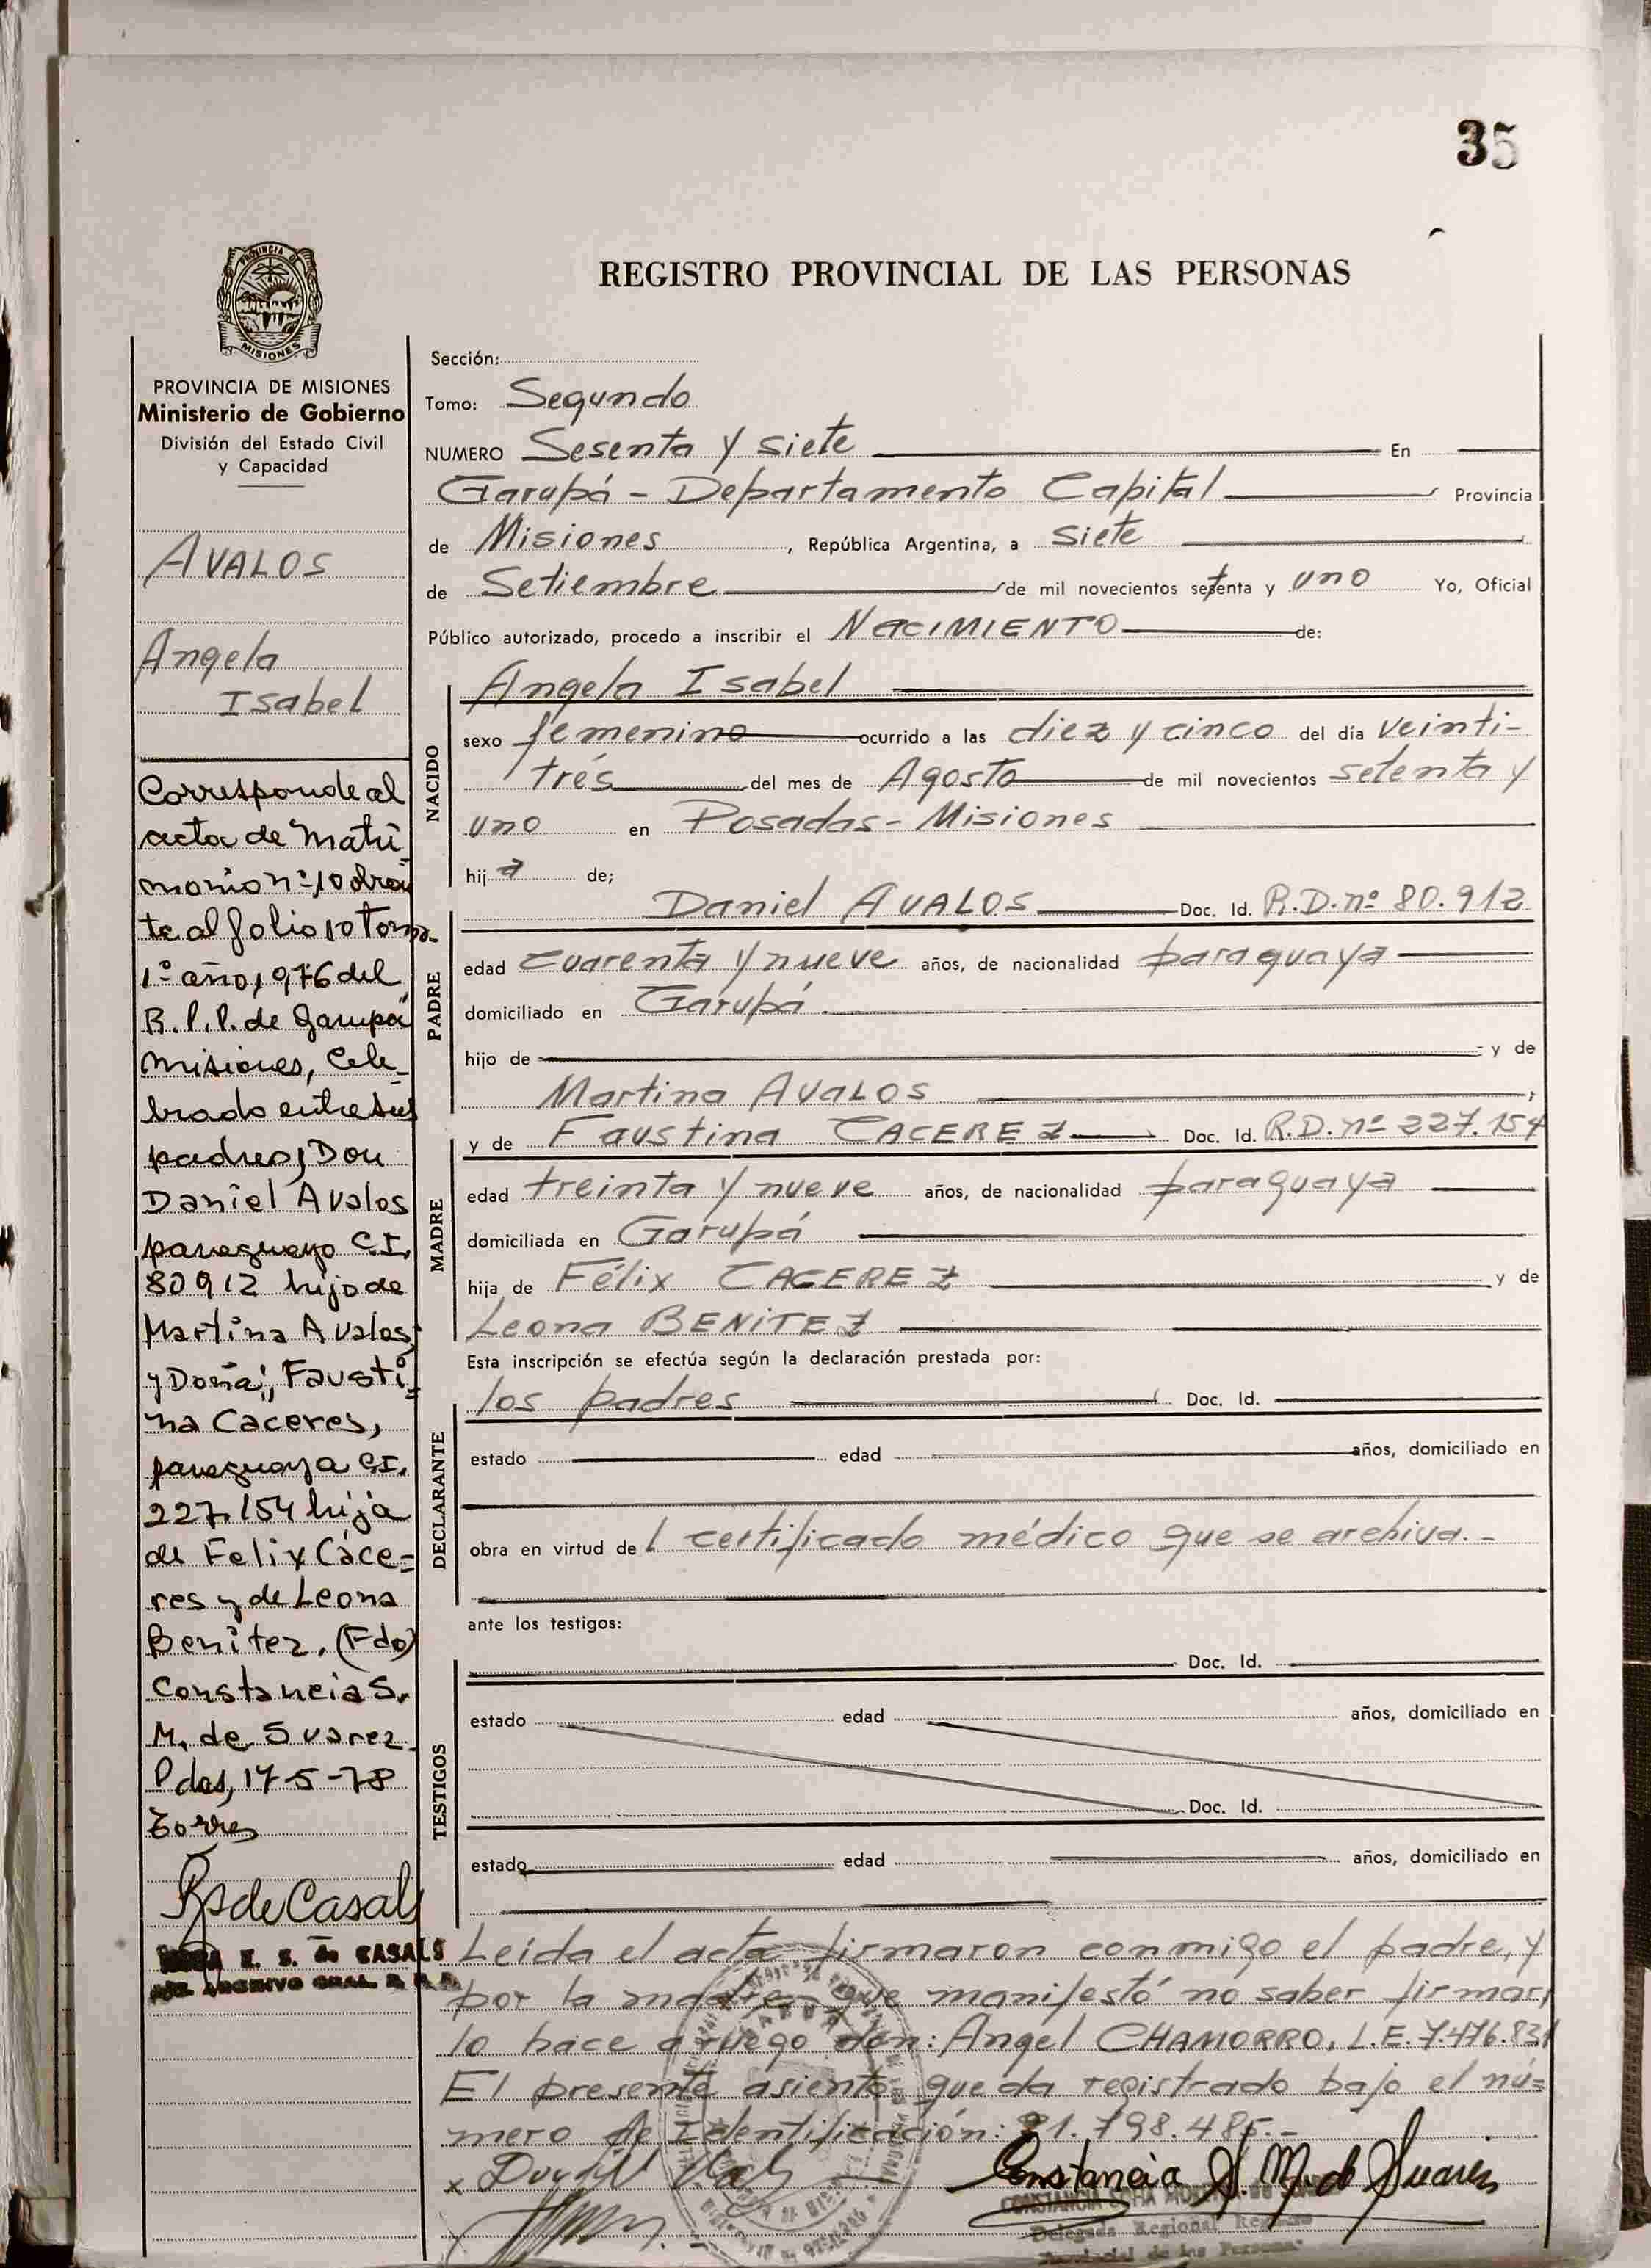 35
PROVINCIA DE
MISIONES
REGISTRO PROVINCIAL DE LAS PERSONAS
PROVINCIA DE MISIONES
Ministerio de Gobierno
División del Estado Civil
y Capacidad
AVALOS
Angela
Isabel
Corresponde al
acta de Matri-
monio nº 10 obran
te al folio 10 Tomo
1º año 1,976 del
R.P.P. de Garupá
Misiones, Cele-
brado entre sus
padres, Don
Daniel Avalos
paraguayo C.I.
80912 hijo de
Martina Avalos
y Doña, Fausti-
na Caceres,
paraguaya C.I.
227.154 hija
de Felix Cáce-
res y de Leona
Benitez, (Fdo)
Constancia S.
M. de Suarez
Pdas, 17-5-78
Torres
R. de Casals
E. S. de CASALS
ARCHIVO GRAL. R. P. P.
Sección:
Tomo: Segundo
NUMERO Sesenta y siete En
Garupá - Departamento Capital Provincia
de Misiones, República Argentina, a siete
de Setiembre de mil novecientos setenta y uno Yo, Oficial
Público autorizado, procedo a inscribir el NACIMIENTO de:
NACIDO
Angela Isabel
sexo femenino ocurrido a las diez y cinco del día veinti-
trés del mes de Agosto de mil novecientos setenta y
uno en Posadas - Misiones
hija de;
PADRE
Daniel AVALOS Doc. Id. R.D. nº 80.912
edad cuarenta y nueve años, de nacionalidad paraguaya
domiciliado en Garupá.
hijo de y de
Martina AVALOS ,
MADRE
y de Faustina CACEREZ Doc. Id. R.D. nº 227.154
edad treinta y nueve años, de nacionalidad paraguaya
domiciliada en Garupá
hija de Félix CACEREZ y de
Leona BENITEZ
Esta inscripción se efectúa según la declaración prestada por:
DECLARANTE
los padres Doc. Id.
estado edad años, domiciliado en
obra en virtud del certificado médico que se archiva.-
ante los testigos:
TESTIGOS
Doc. Id.
estado edad años, domiciliado en
Doc. Id.
estado edad años, domiciliado en
Leída el acta firmaron conmigo el padre, y
por la madre que manifestó no saber firmar,
lo hace a ruego don: Angel CHAMORRO, L.E. 7.476.831
El presente asiento queda registrado bajo el nú-
mero de Identificación: 21.798.485.-
x
Constancia S. M. de Suarez
CONSTANCIA SOFIA
Delegada Regional Registro
Provincial de las Personas